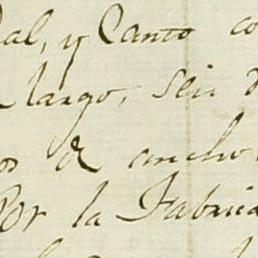 al, y Canto co
largo, seis
de ancho
Por la Fabrica